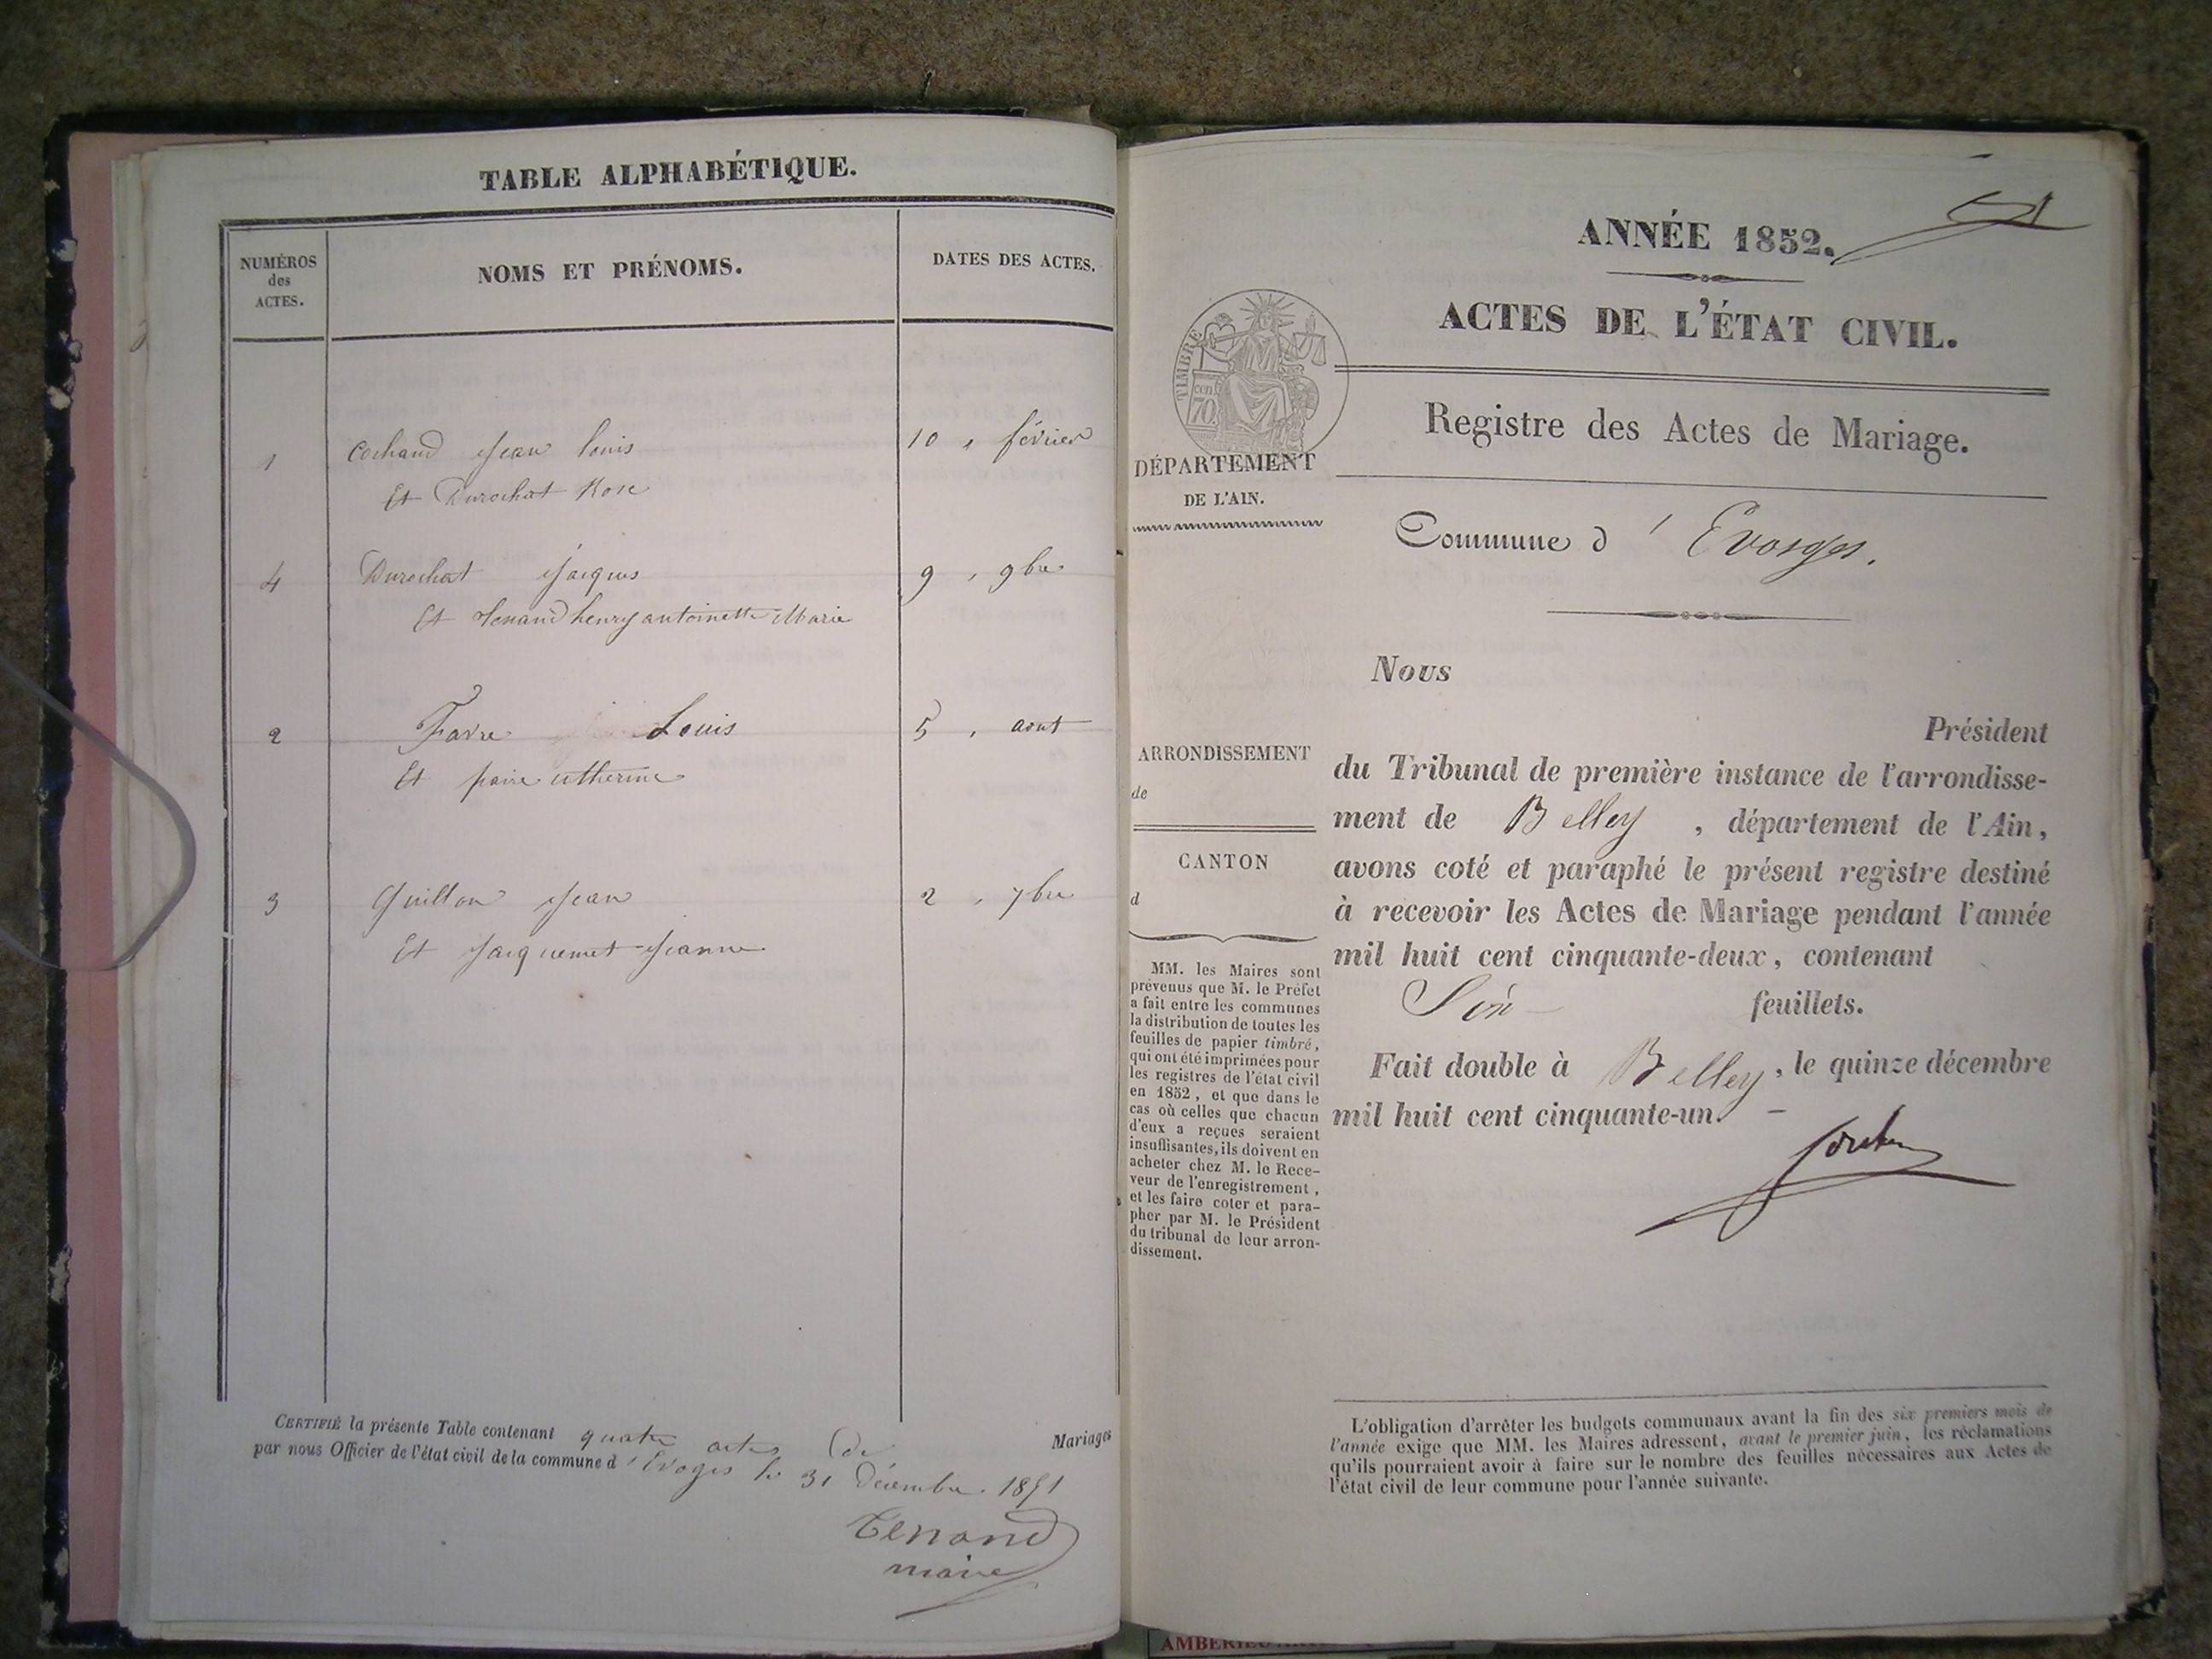 TABLE ALPHABÉTIQUE.
NUMÉROS
des
ACTES.
NOMS ET PRÉNOMS.
DATES DES ACTES.
1 Cochand Jean Louis 10 , février
Et Durochat Rose
4 Durochat Jacques 9 , 9bre
Et Tenand henry antoinette Marie
2 Favre Louis 5 , aout
Et
3 Guillon Jean 2 , 7bre
Et Jacquemet Jeanne
CERTIFIÉ la présente Table contenant quatre actes de Mariages
par nous Officier de l'état civil de la commune d'Evoges le 31 Décembre 1851
Tenand
maire
ANNÉE 1852.
ACTES DE L'ÉTAT CIVIL.
TIMBRE
cen.
70.
Registre des Actes de Mariage.
DÉPARTEMENT
DE L'AIN.
Commune d'Evosges.
Nous
Président
ARRONDISSEMENT
de
CANTON
d
du Tribunal de première instance de l'arrondisse-
ment de Belley , département de l'Ain,
avons coté et paraphé le présent registre destiné
à recevoir les Actes de Mariage pendant l'année
mil huit cent cinquante-deux, contenant
feuillets.
Fait double à Belley, le quinze décembre
mil huit cent cinquante-un.
MM. les Maires sont
prévenus que M. le Préfet
a fait entre les communes
la distribution de toutes les
feuilles de papier timbré,
qui ont été imprimées pour
les registres de l'état civil
en 1852, et que dans le
cas où celles que chacun
d'eux a reçues seraient
insuffisantes, ils doivent en
acheter chez M. le Rece-
veur de l'enregistrement,
et les faire coter et para-
pher par M. le Président
du tribunal de leur arron-
dissement.
L'obligation d'arrêter les budgets communaux avant la fin des six premiers mois de
l'année exige que MM. les Maires adressent, avant le premier juin, les réclamations
qu'ils pourraient avoir à faire sur le nombre des feuilles nécessaires aux Actes de
l'état civil de leur commune pour l'année suivante.